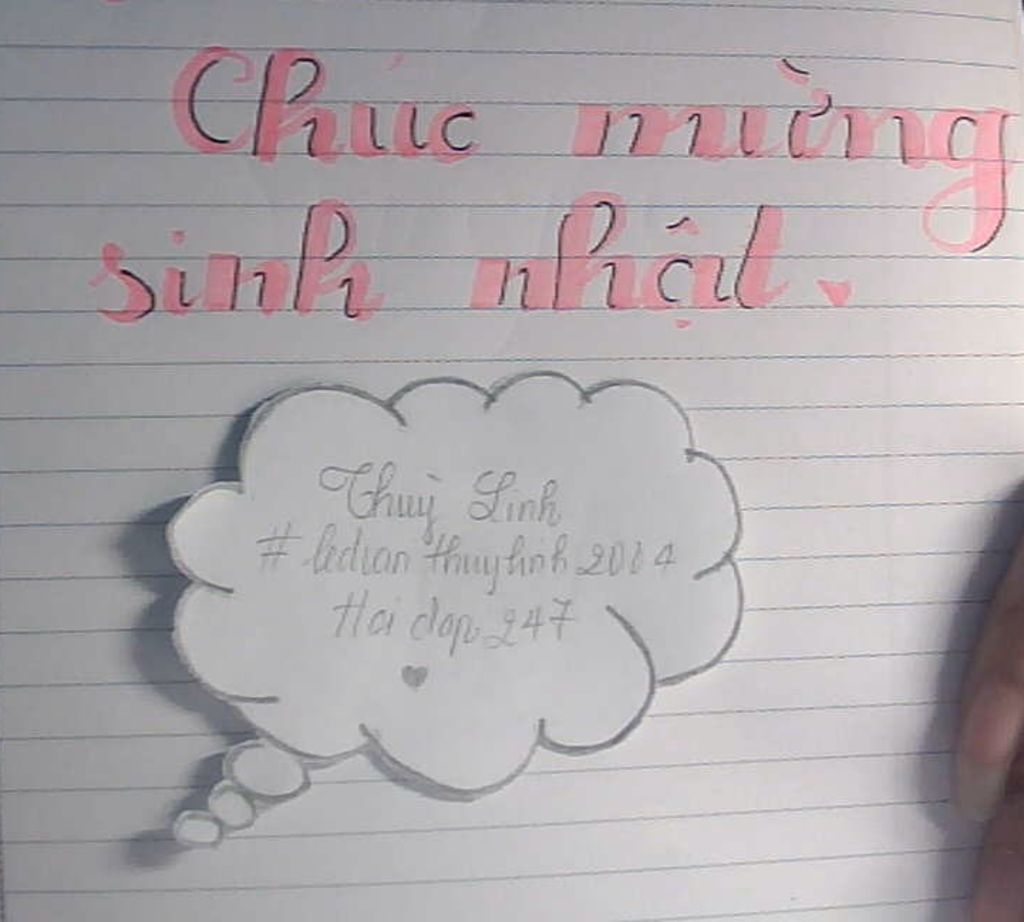 Chúc mừng
sinh nhật
Thuỳ Linh
# ledtranthuylinh2014
Hoi dap 247